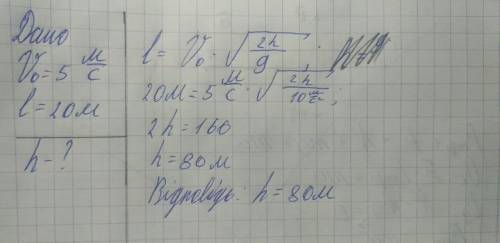 Дано
V₀=5 м/с
l=20м
h-?
l= V₀·√(2h/g);
20м=5 м/с·√(2h/10 м/с²);
2h=160
h=80м
Відповідь: h=80м